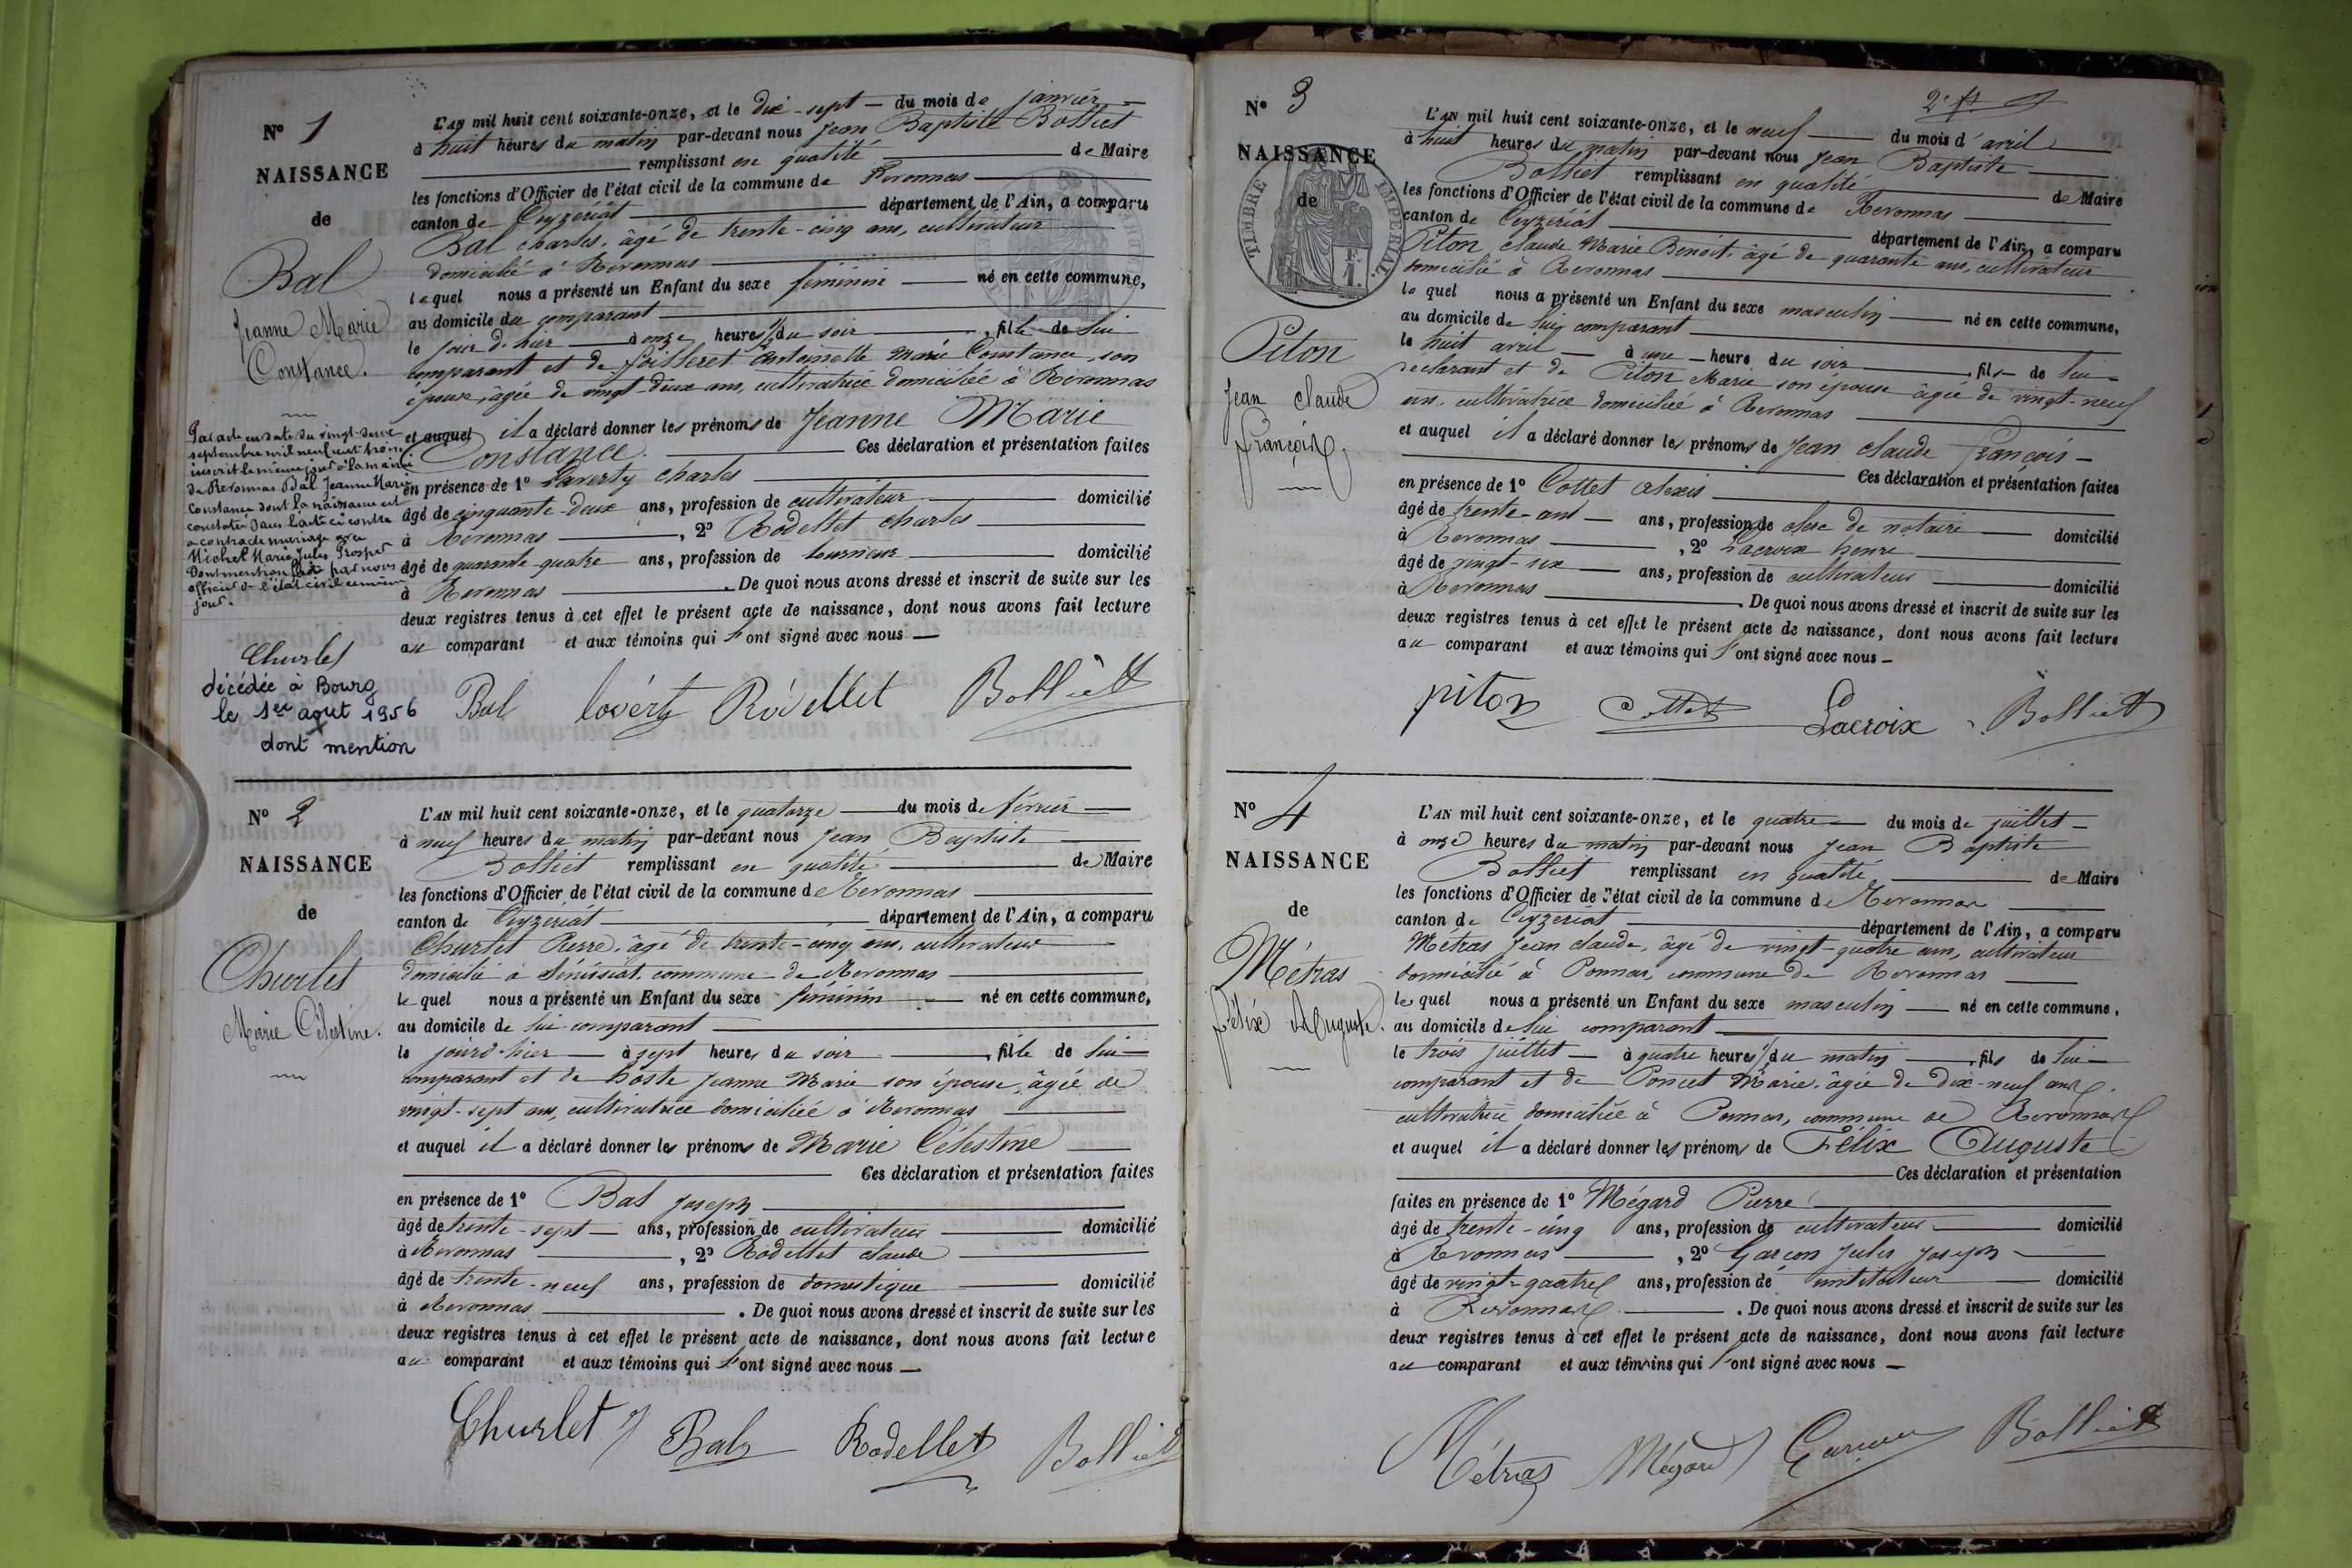 N° 1
NAISSANCE
de
Bal
Jeanne Marie
Constance.
Par acte en date du vingt-deux
septembre mil neuf cent trois
inscrit le même jour à la mairie
de Revonnas Bal Jeanne Marie
Constance dont la naissance est
constatée dans l'acte ci contre
a contracté mariage avec
Michel Marie Jules Prosper
Dont mention faite par nous
officier de l'état civil ce même
jour.
Churlet
décédée à Bourg
le 1er aout 1956
dont mention
L'AN mil huit cent soixante-onze, et le dix-sept du mois de janvier
à huit heures du matin par-devant nous Jean Baptiste Bolliet
remplissant en qualité de Maire
les fonctions d'Officier de l'état civil de la commune de Revonnas
canton de Ceyzeriat département de l'Ain, a comparu
Bal charles, âgé de trente-cinq ans, cultivateur
domicilié à Revonnas
lequel nous a présenté un Enfant du sexe féminin né en cette commune,
au domicile du comparant
le jour d'hier à onze heures du soir, fille de lui
comparant et de Antoinette Marie Constance, son
épouse, âgée de vingt-deux ans, cultivatrice domiciliée à Revonnas
et auquel il a déclaré donner les prénoms de Jeanne Marie
Constance. Ces déclaration et présentation faites
en présence de 1° Laverty charles
âgé de cinquante-deux ans, profession de cultivateur domicilié
à Revonnas, 2° Rodellet charles
âgé de quarante-quatre ans, profession de domicilié
à Revonnas. De quoi nous avons dressé et inscrit de suite sur les
deux registres tenus à cet effet le présent acte de naissance, dont nous avons fait lecture
au comparant et aux témoins qui l'ont signé avec nous
Bal Rodellet Bolliet
N° 2
NAISSANCE
de
Churlet
Marie Célestine.
L'AN mil huit cent soixante-onze, et le quatorze du mois de février
à neuf heures du matin par-devant nous Jean Baptiste
Bolliet remplissant en qualité de Maire
les fonctions d'Officier de l'état civil de la commune de Revonnas
canton de Ceyzeriat département de l'Ain, a comparu
Churlet Pierre, âgé de trente-cinq ans, cultivateur
domicilié à Sénissiat, commune de Revonnas
lequel nous a présenté un Enfant du sexe féminin né en cette commune,
au domicile de lui comparant
le jour d'hier à sept heures du soir, fille de lui
comparant et de hoste Jeanne Marie son épouse, âgée de
vingt-sept ans, cultivatrice domiciliée à Revonnas
et auquel il a déclaré donner les prénoms de Marie Célestine
Ces déclaration et présentation faites
en présence de 1° Bal joseph
âgé de trente-sept ans, profession de cultivateur domicilié
à Revonnas, 2° Rodellet claude
âgé de trente-neuf ans, profession de domestique domicilié
à Revonnas. De quoi nous avons dressé et inscrit de suite sur les
deux registres tenus à cet effet le présent acte de naissance, dont nous avons fait lecture
au comparant et aux témoins qui l'ont signé avec nous
Churlet Bal Rodellet Bolliet
N° 3
NAISSANCE
de
TIMBRE IMPERIAL.
1 F.
Piton
Jean claude
François.
L'AN mil huit cent soixante-onze, et le neuf du mois d'avril
à huit heures du matin par-devant nous Jean Baptiste
Bolliet remplissant en qualité de Maire
les fonctions d'Officier de l'état civil de la commune de Revonnas
canton de Ceyzeriat département de l'Ain, a comparu
Piton claude Marie Benoit, âgé de quarante ans, cultivateur
domicilié à Revonnas
lequel nous a présenté un Enfant du sexe masculin né en cette commune,
au domicile de lui comparant
le huit avril à une heure du soir, fils de lui
déclarant et de Piton Marie son épouse âgée de vingt-neuf
ans, cultivatrice domiciliée à Revonnas
et auquel il a déclaré donner les prénoms de Jean claude François
Ces déclaration et présentation faites
en présence de 1° Collet alexis
âgé de trente-ans ans, profession de clerc de notaire domicilié
à Revonnas, 2° Lacroix henri
âgé de vingt-six ans, profession de cultivateur domicilié
à Revonnas. De quoi nous avons dressé et inscrit de suite sur les
deux registres tenus à cet effet le présent acte de naissance, dont nous avons fait lecture
au comparant et aux témoins qui l'ont signé avec nous
piton Collet Lacroix Bolliet
N° 4
NAISSANCE
de
Métras
Félix Auguste.
L'AN mil huit cent soixante-onze, et le quatre du mois de juillet
à onze heures du matin par-devant nous Jean Baptiste
Bolliet remplissant en qualité de Maire
les fonctions d'Officier de l'état civil de la commune de Revonnas
canton de Ceyzeriat département de l'Ain, a comparu
Métras Jean claude, âgé de vingt-quatre ans, cultivateur
domicilié à Ponnas, commune de Revonnas
lequel nous a présenté un Enfant du sexe masculin né en cette commune,
au domicile de lui comparant
le trois juillet à quatre heures du matin, fils de lui
comparant et de Poncet Marie, âgée de dix-neuf ans,
cultivatrice domiciliée à Ponnas, commune de Revonnas
et auquel il a déclaré donner les prénoms de Félix Auguste
Ces déclaration et présentation
faites en présence de 1° Mégard Pierre
âgé de trente-cinq ans, profession de cultivateur domicilié
à Revonnas, 2° Garcon Jules Joseph
âgé de vingt-quatre ans, profession de instituteur domicilié
à Revonnas. De quoi nous avons dressé et inscrit de suite sur les
deux registres tenus à cet effet le présent acte de naissance, dont nous avons fait lecture
au comparant et aux témoins qui l'ont signé avec nous
Métras Mégard Garcon Bolliet